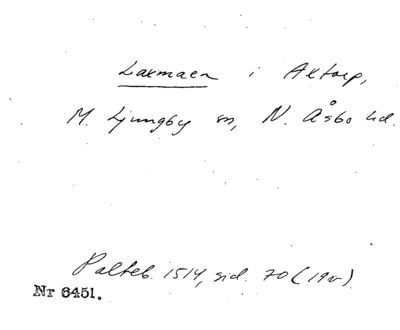 Laxmaen i Axtorp,
M. Ljungby sn, N. Åsbo hd.
Palteb. 1514, sid. 70 (19v).
Nr 6451.